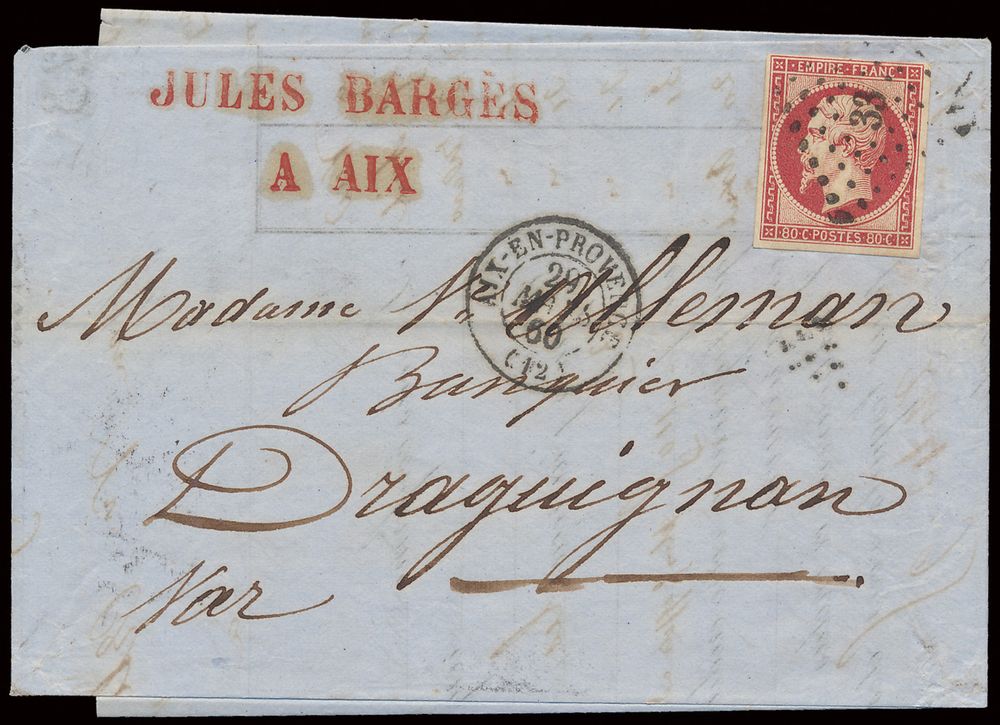 JULES BARGÈS
A AIX
EMPIRE FRANC
80·C·POSTES·80·C
AIX-EN-PROVENCE
29
MARS
60
(12)
Madame Vve Alleman
Banquier
Draguignan
Var